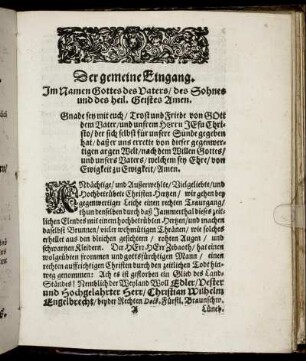 Der gemeine Eingang.
Im Namen Gottes des Vaters/ des Sohnes
und des heil. Geistes Amen.
Gnade sey mit euch/ Trost und Friede von GOtt
dem Vater/ und unsrem Herrn JEsu Chri-
sto/ der sich selbst für unsere Sünde gegeben
hat/ daß er uns errette von dieser gegenwer-
tigen argen Welt/ nach dem Willen Gottes/
und unsers Vaters/ welchem sey Ehre/ von
Ewigkeit zu Ewigkeit/ Amen.
ANdächtige/ und Außerwehlte/ Vielgeliebte/ und
Hochbetrübete Christen-Hertzen/ wir gehen bey
gegenwertiger Leiche einen rechten Traurgang/
thun denselben durch daß Jammerthal dieses zeit-
lichen Elendes mit einem hochbetrübten Hertzen/ und machen
daselbst Brunnen/ vieler wehmütigen Thränen/ wie solches
erhellet aus den bleichen gesichtern/ rohten Augen/ und
schwartzen Kleidern. Der HErr HErr Zebaoth/ hat einen
wolgeübten frommen und gottsfürchtigen Mann/ einen
rechten auffrichtigen Christen durch den zeitlichen Todt hin-
weg genommen: Ach es ist gestorben ein Glied des Land-
Ständes! Nemblich der Weyland Woll Edler/ Vester
und Hochgelahrter Herr/ Christian Wilhelm
Engelbrecht/ beyder Rechten Doct. Fürstl. Braunschw.
A Lüneb.